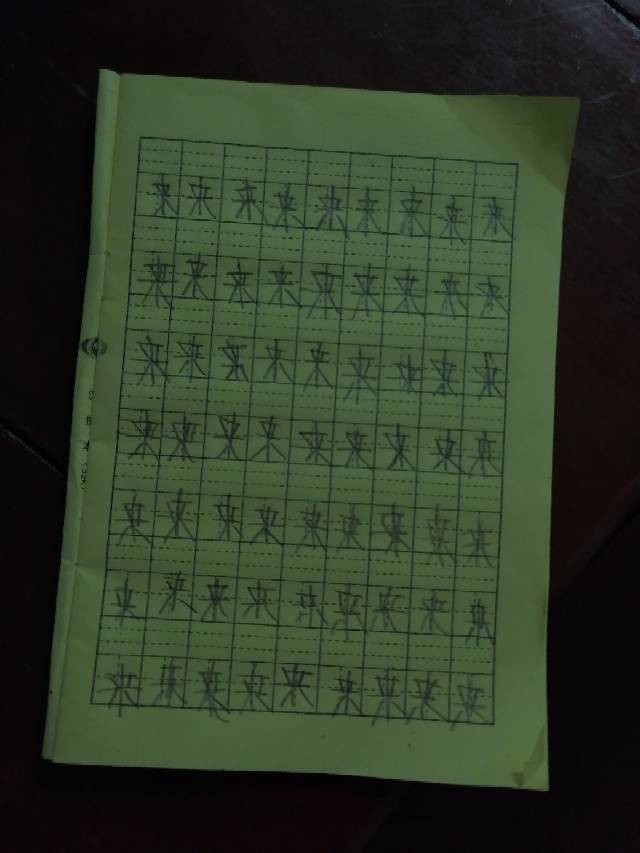 来 来 来 来 来 来 来 来 来
来 来 来 来 来 来 来 来 来
来 来 来 来 来 来 来 来 来
来 来 来 来 来 来 来 来 来
来 来 来 来 来 来 来 来 来
来 来 来 来 来 来 来 来 来
来 来 来 来 来 来 来 来 来